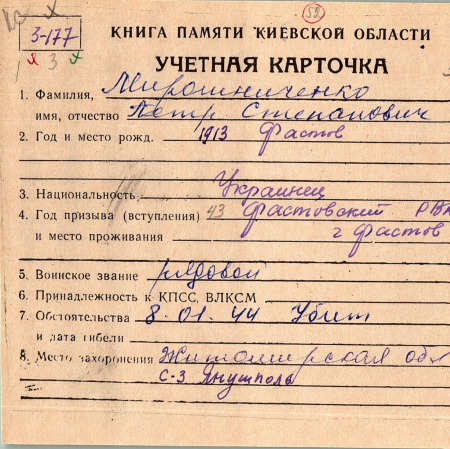 52
3-177
я 3 х
КНИГА ПАМЯТИ КИЕВСКОЙ ОБЛАСТИ
УЧЕТНАЯ КАРТОЧКА
1. Фамилия, Мирошниченко
имя, отчество Петр Степанович
2. Год и место рожд. 1913 Фастов
3. Национальность Украинец
4. Год призыва (вступления) 43 Фастовский РВК
и место проживания г Фастов
5. Воинское звание рядовой
6. Принадлежность к КПСС, ВЛКСМ
7. Обстоятельства 8.01.44 Убит
и дата гибели
8. Место захоронения Житомирская обл
с-з Янушполь